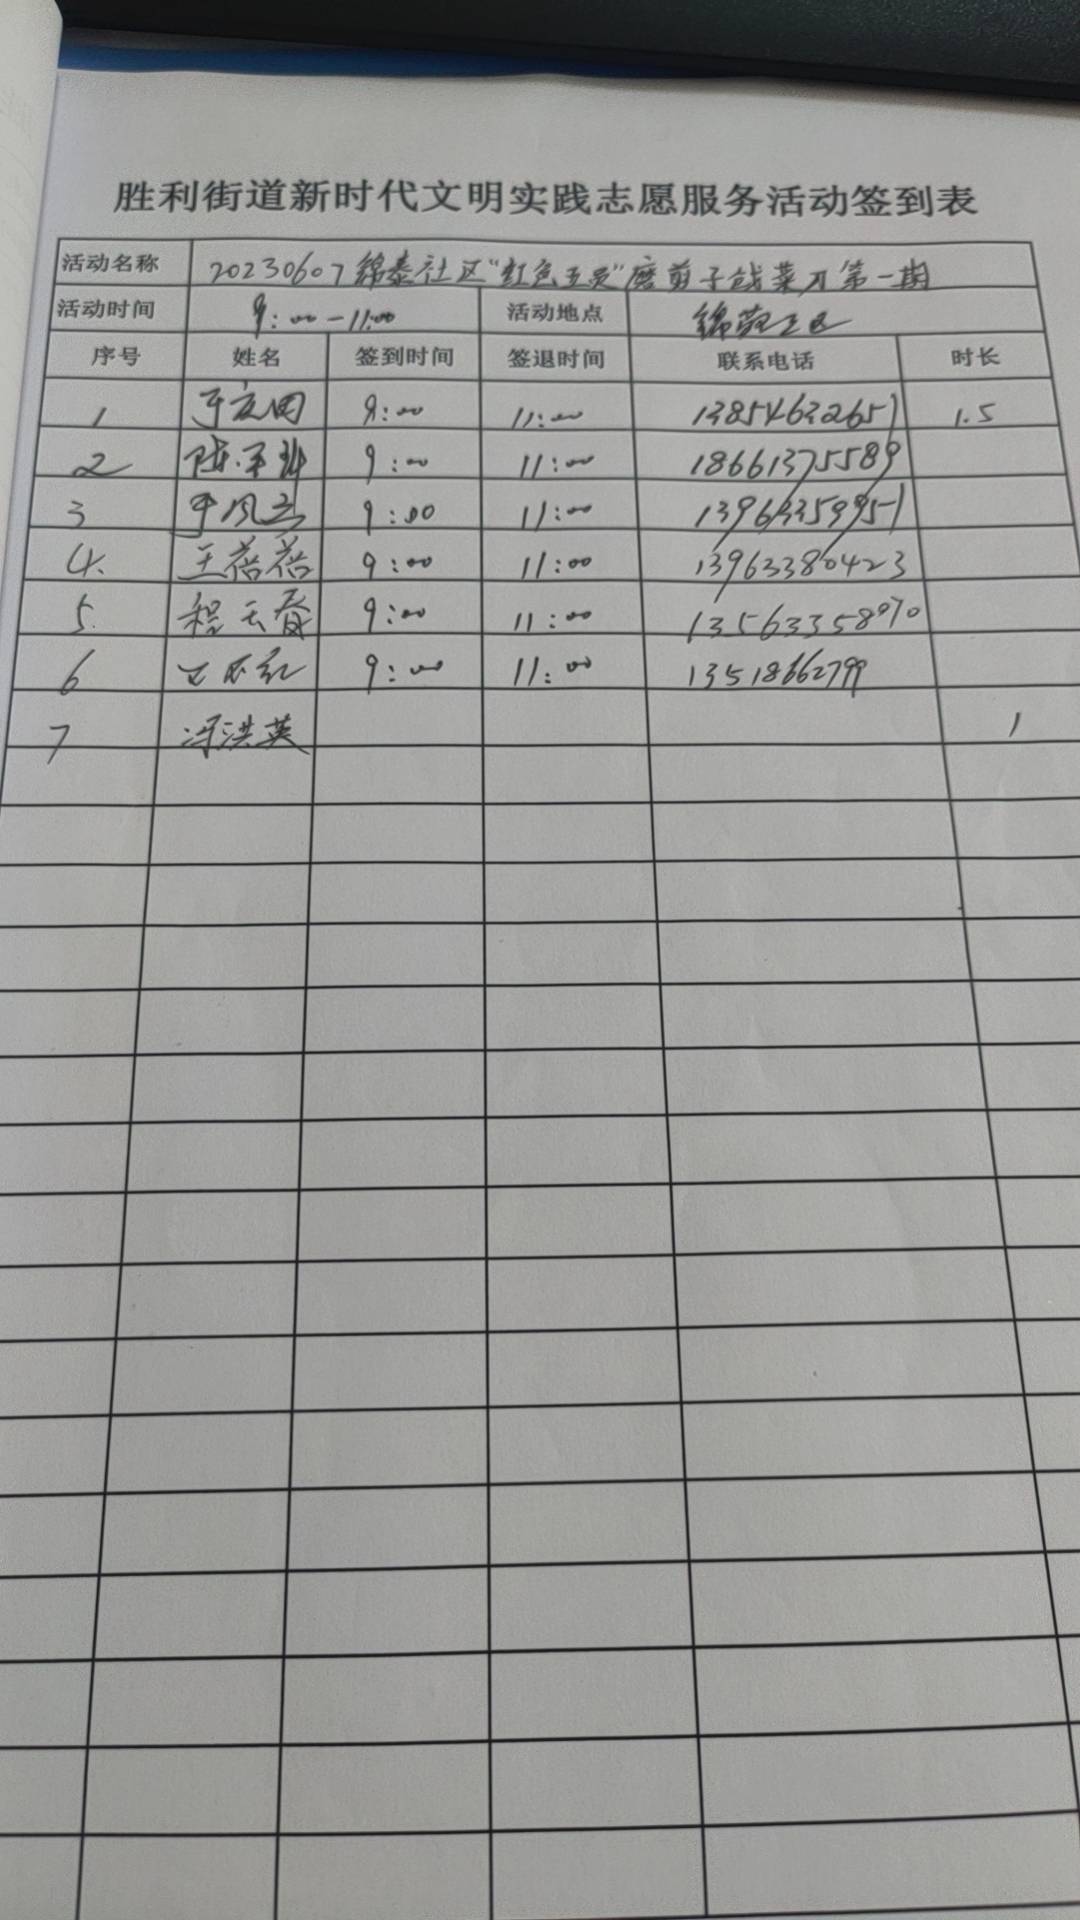 胜利街道新时代文明实践志愿服务活动签到表
活动名称 20230607锦泰社区"红色五员"磨剪子戗菜刀第一期
活动时间 9:00-11:00 活动地点 锦苑三区
序号 姓名 签到时间 签退时间 联系电话 时长
1 9:00 11:00 13854632651 1.5
2 9:00 11:00 18661375589
3 于凤兰 9:00 11:00 13963359951
4. 王蓓蓓 9:00 11:00 13963380423
5. 程天香 9:00 11:00 13563358970
6 9:00 11:00 13518662799
7 冯洪英 1